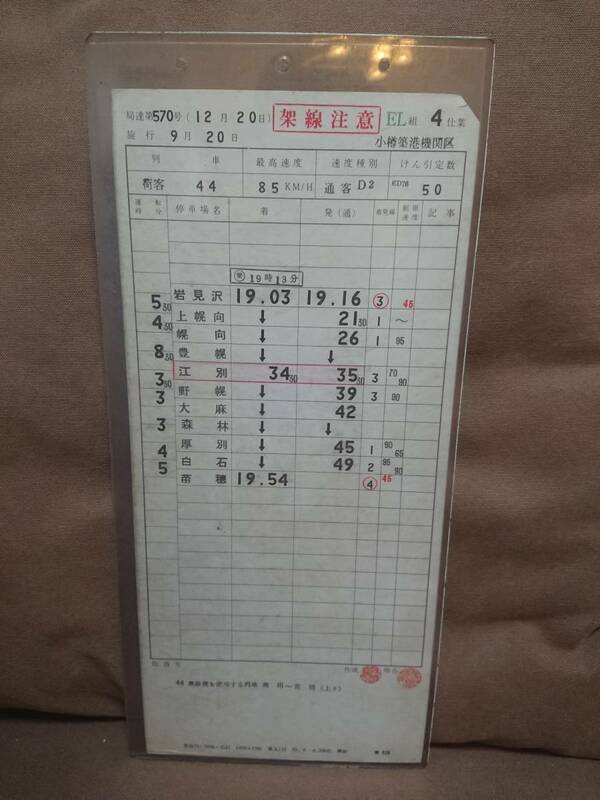 局達第570号(12月20日) 架線注意 EL組 4仕業
施行 9月20日 小樽築港機関区
列車 最高速度 速度種別 けん引定数
荷客 44 85KM/H 通客D2 ED76 50
運転時分 停車場名 着 発(通) 着発線 制限速度 記事
19時13分
5 30 岩見沢 19.03 19.16 ③ 45
4 30 上幌向 ↓ 21 30 1 〜
幌向 ↓ 26 1 95
8 30 豊幌 ↓ ↓
江別 34 30 35 30 3 70 90
3 30 野幌 ↓ 39 3 90
3 大麻 ↓ 42
3 森林 ↓ ↓
厚別 ↓ 45 1 90 65
4 白石 ↓ 49 2 95 90
5 苗穂 19.54 ④ 45
作成